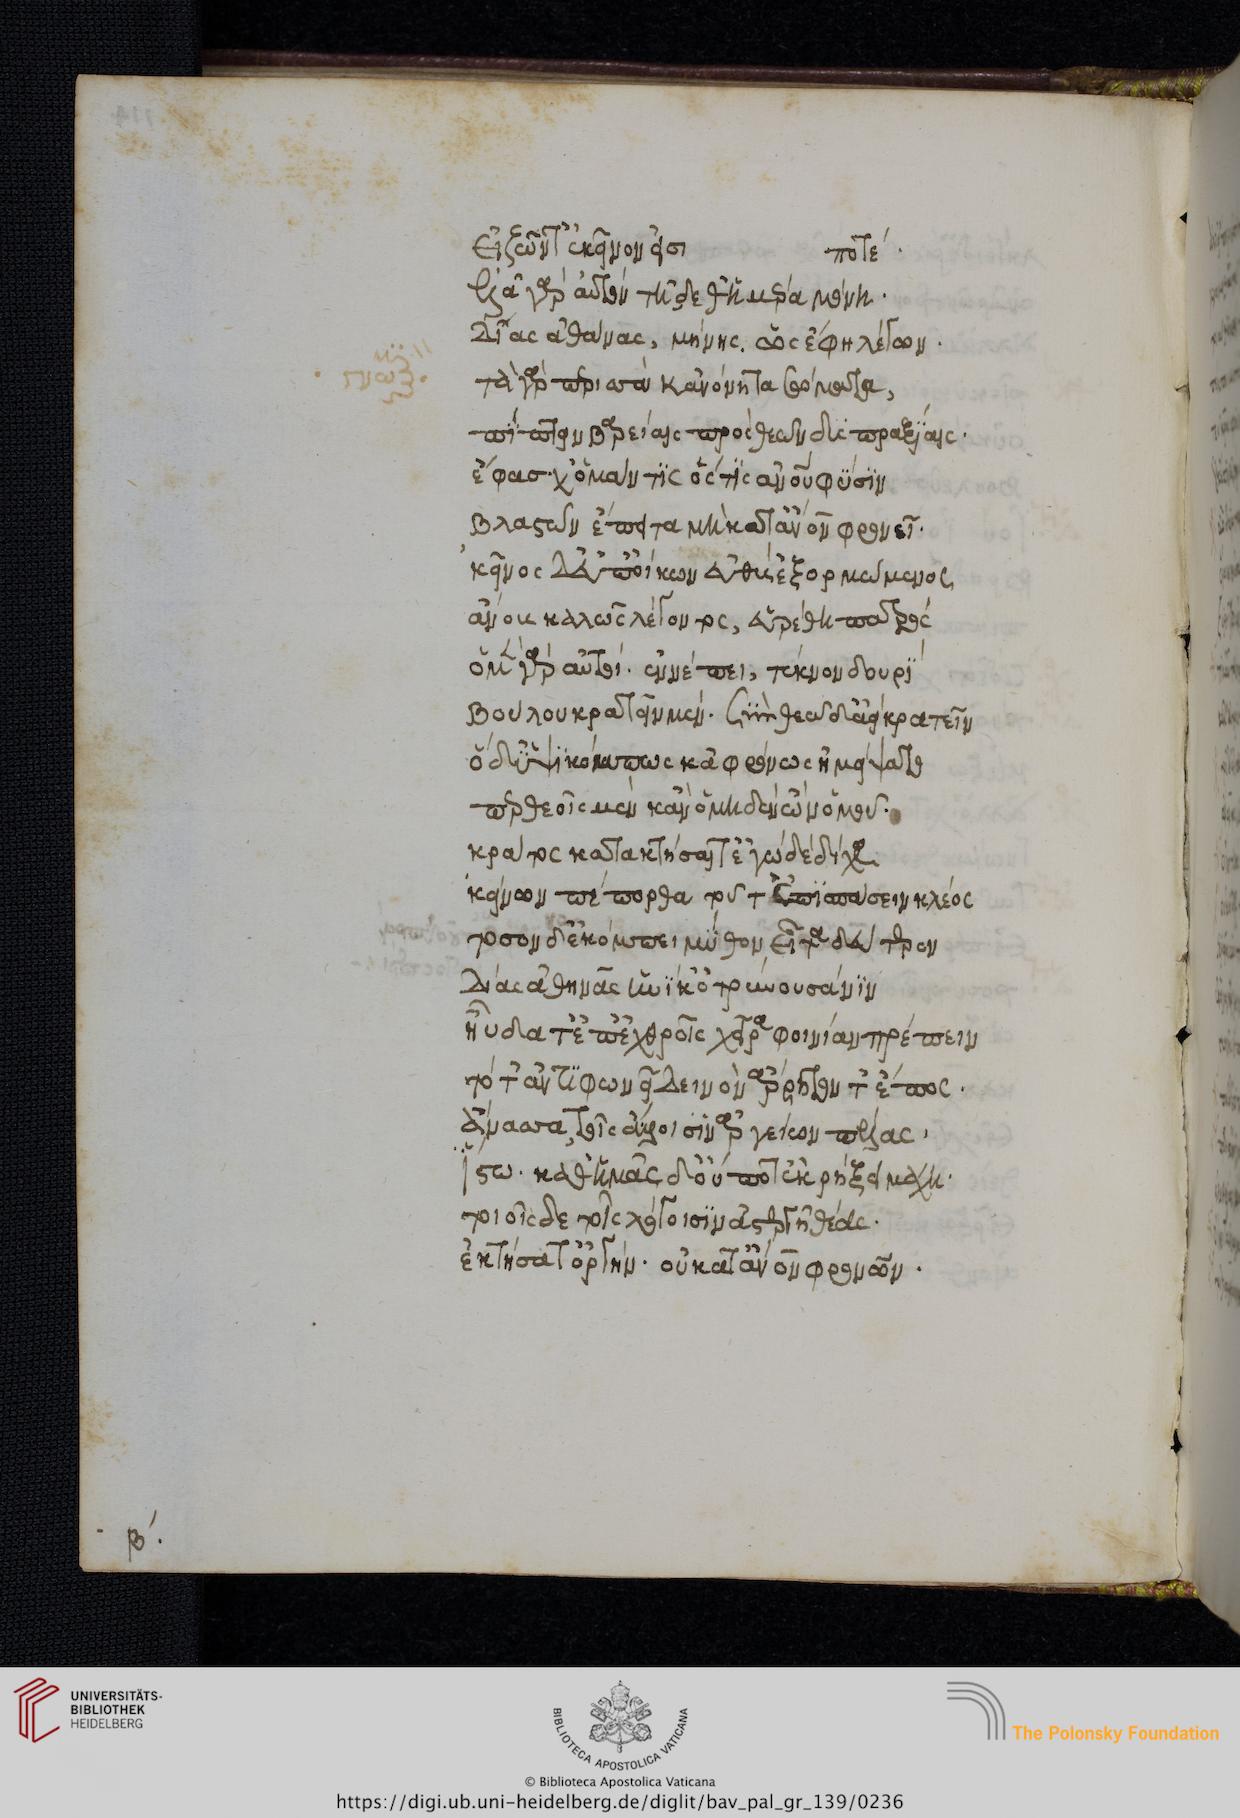 εἰ ζῶντ' ἐκεῖνον εἰσι ποτέ.
ἐλᾷ γὰρ αὐτὸν τῇδε θ' ἡμέρα μόνη.
δίας ἀθάνας, μήνης. ὡς ἔφη λέγων.
τὰ γὰρ περισσὰ κἀνόνητα σώματα,
πίπτειν βαρείαις πρὸς θεῶν δυσπραξίαις.
ἔφασχ' ὁ μάντις ὅστις ἀνου φύσιν
βλαστὼν ἔπειτα μὴ κατ' ἄνον φρονεῖ.
κεῖνος δ' ἀπ' οἴκων εὐθὺς ἐξορμώμενος
ἄνους καλῶς λέγοντος, εὑρέθη πατρός
ὁ μὲν γὰρ αὐτὸν ἐννέπει, τέκνον δουρὶ
βούλου κρατεῖν μέν. σὺν θεῶ δ' ἀεὶ κρατεῖν
ὁ δ' ὑψικόμπως κἀφρόνως ἠμείψατο
πάτερ θεοῖς μὲν κἂν ὁ μηδὲν ὢν ὁμοῦ.
κράτος κατακτήσαιτ' ἐγὼ δὲ δίχα
κείνων πέπορθα τοῦτ' ἐπισπάσειν κλέος
τοσόνδ' ἐκόμπει μῦθον, εἶτα δεύτερον
δίας ἀθηνᾶς ἡνίκ' ὀτρύνουσά νιν
ηὐδᾶτ' ἐπ' ἐχθροῖς χεῖρα φοινίαν τρέπειν
τότ' ἀντιφωνεῖ δεινὸν ἄρρητον τ' ἔπος.
ἄνασσα, τοῖς ἄλλοισιν ἀργείων πέλας,
ἵστω. καθ' ἡμᾶς δ' οὔποτ' ἐκρήξει μάχη.
τοιοῖσδε τοῖς λόγοισιν ἀστεργῆ θεᾶς.
ἐκτήσατ' ὀργήν. οὐ κατ' ἄνον φρονῶν.
β'.
UNIVERSITÄTS-
BIBLIOTHEK
HEIDELBERG
BIBLIOTECA APOSTOLICA VATICANA
The Polonsky Foundation
© Biblioteca Apostolica Vaticana
https://digi.ub.uni-heidelberg.de/diglit/bav_pal_gr_139/0236